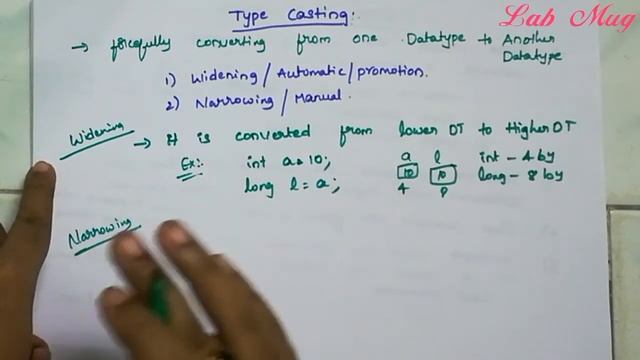 Lab Mug
Type Casting:
→ forcefully converting from one Datatype to Another Datatype
1) Widening / Automatic / promotion.
2) Narrowing / Manual.
Widening → It is converted from lower DT to Higher DT
Ex:- int a=10; a l int - 4 by
long l = a; 10 10 long - 8 by
4 8
Narrowing